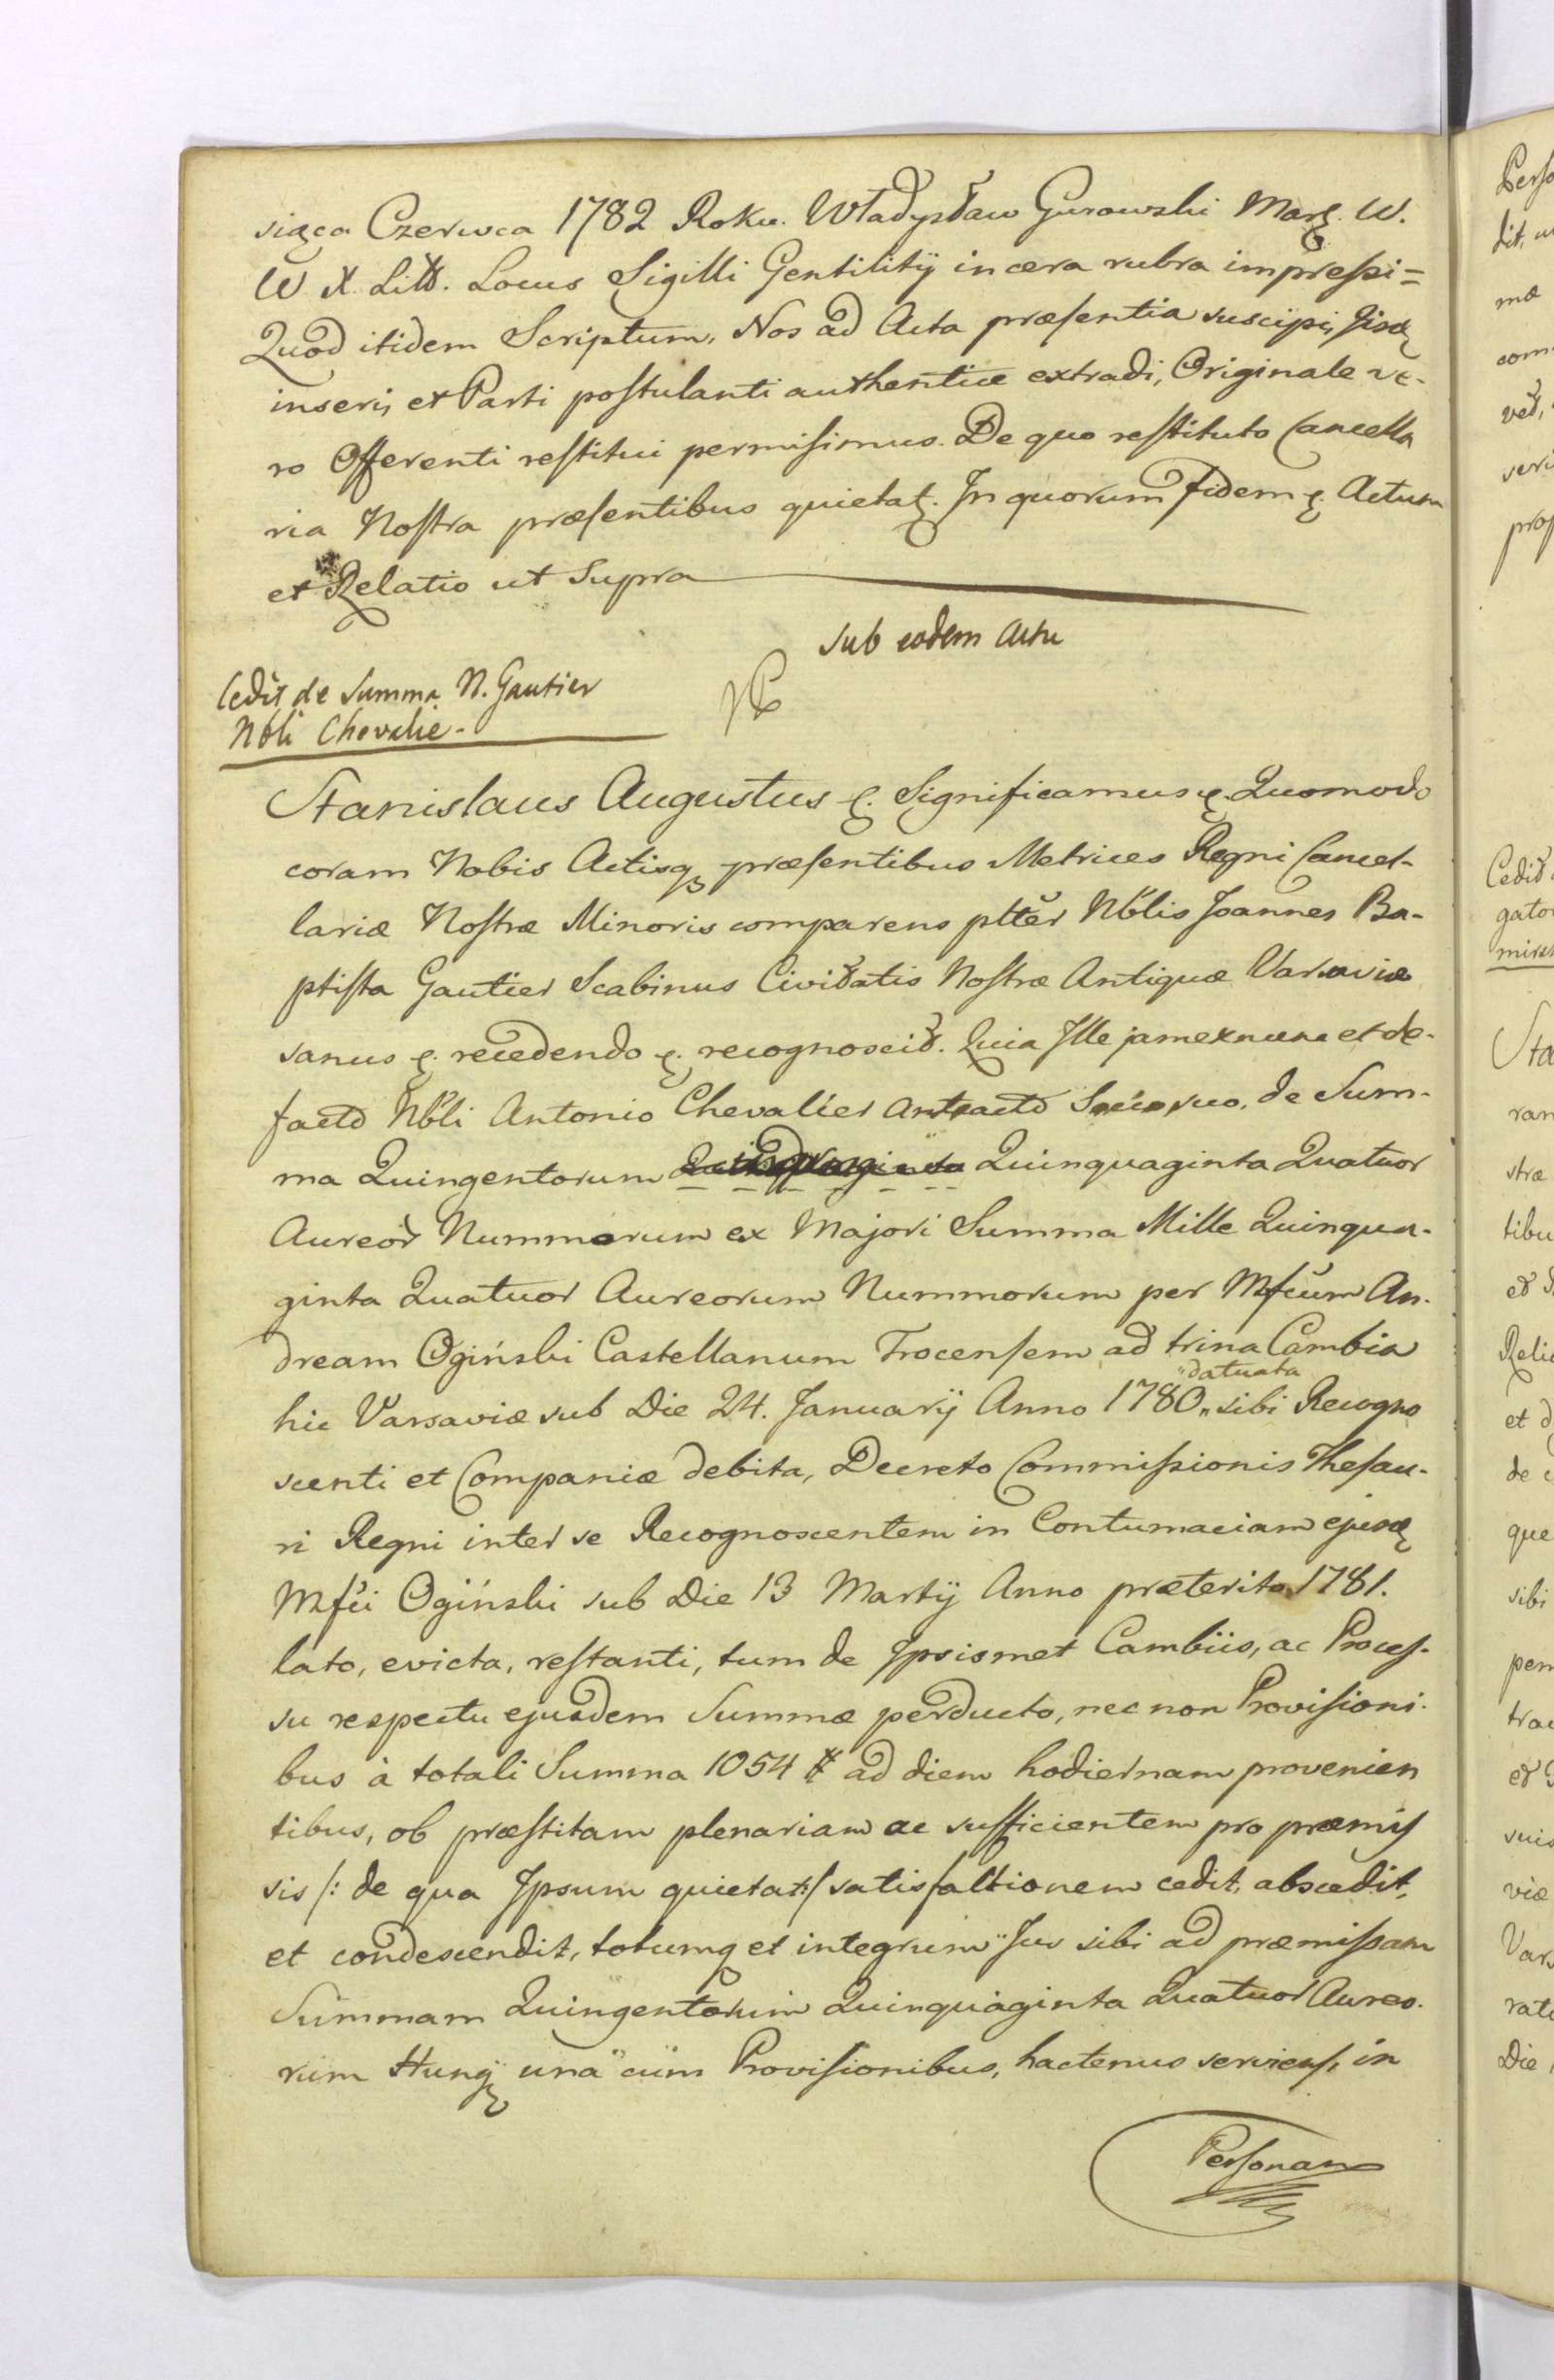 siąca Czerwca 1782 Roku. Władysław Gurowski Marᶎ. W.
W X Litt. Locus Sigilli Gentilitij in cera rubra impressi=
Quod itidem Scriptum, Nos ad Acta præsentia suscipi, Jisq
inseri, et Parti postulanti authentice extradi, Originale ve-
ro Offerenti restitui permisimus. De quo restituto Cancella
ria Nostra præsentibus quietatᶎ. In quorum fidem ᶎ. Actum
et Relatio ut Supra
sub eodem Actu
Cedit de Summa N. Gautier
Nbli Chevalie-
Stanislaus Augustus ᶎ. Significamus ᶎ. Quomodo
coram Nobis Actisq præsentibus Metrices Regni Cancel-
lariæ Nostræ Minoris comparens pltter Nblis Joannes Ba-
ptista Gautier Scabinus Civitatis Nostræ Antiquæ Varsaviæ
sanus ᶎ. recedendo ᶎ. recognoscit. Quia Ille jam ex nunc et de-
facto Nbli Antonio Chevalier Socio suo, de Sum-
ma Quingentorum Quinquaginta Quatuor
Aureor Nummorum ex Majori Summa Mille Quinqua-
ginta Quatuor Aureorum Nummorum per Mfcum An-
dream Ogiński Castellanum Trocensem ad trina Cambia
datuata
hic Varsaviæ sub Die 24. Januarij Anno 1780 „ sibi Recogno
scenti et Companiæ debita, Decreto Commissionis Thesau-
ri Regni inter se Recognoscentem in Contumaciam ejusq
Mfci Ogiński sub Die 13 Martij Anno præterito 1781.
lato, evicta, restanti, tum de Ipsismet Cambiis, ac Proces-
su respectu ejusdem Summæ perducto, nec non Provisioni-
bus à totali Summa 1054 # ad diem hodiernam provenien
tibus, ob præstitam plenariam ac sufficientem pro præmis
sis /: de qua Ipsum quietat :/ satisfactionem cedit, abscedit,
et condescendit, totumq et integrum Jus sibi ad præmissam
Summam Quingentorum Quinquaginta Quatuor Aureo-
rum Hungᶎ una cum Provisionibus, hactenus serviens, in
Personam